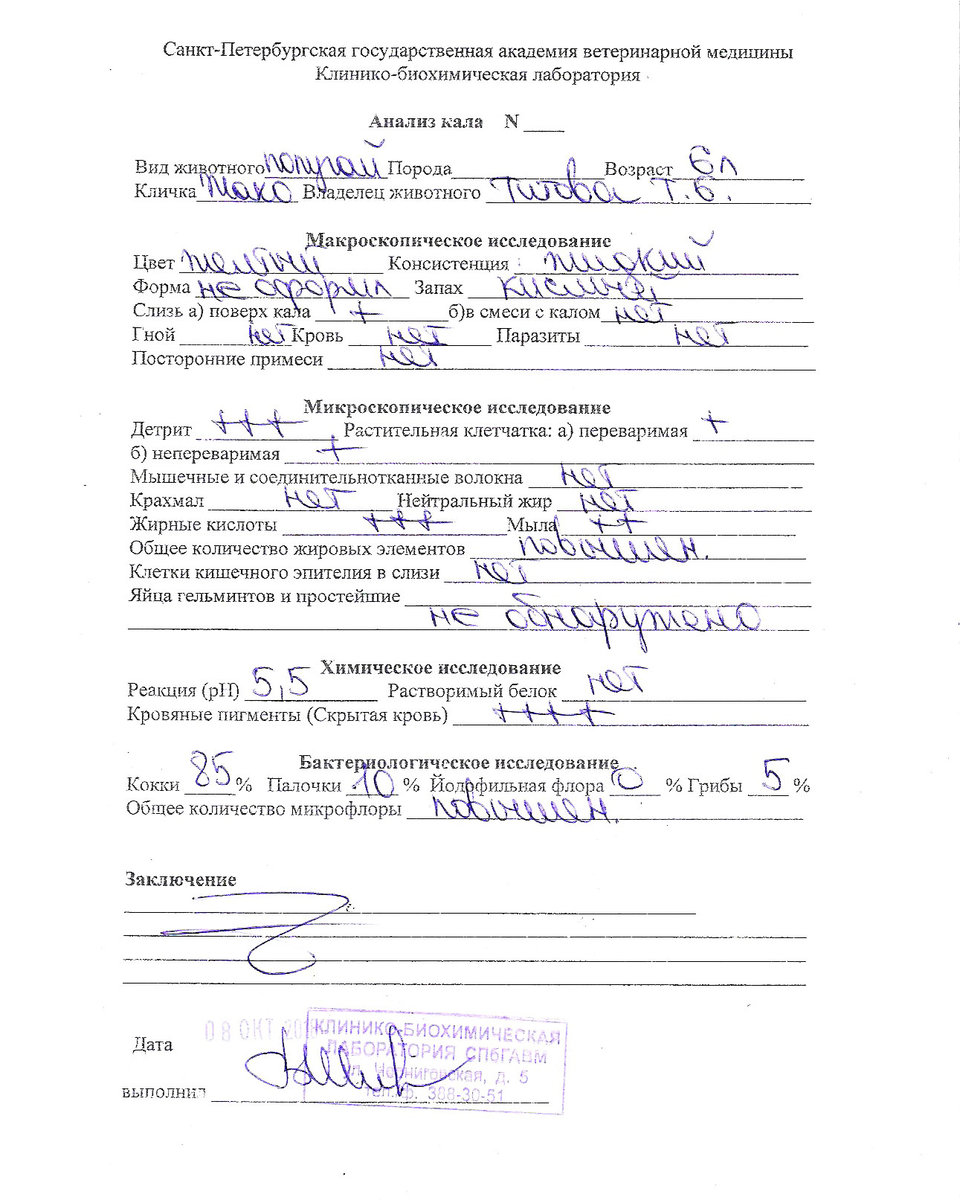 Санкт-Петербургская государственная академия ветеринарной медицины
Клинико-биохимическая лаборатория
Анализ кала N ____
Вид животного попугай Порода Возраст 6 л
Кличка Жако Владелец животного Титова Т.Б.
Макроскопическое исследование
Цвет желтый Консистенция: жидкий
Форма не оформл Запах кислый
Слизь а) поверх кала + б)в смеси с калом нет
Гной нет Кровь нет Паразиты нет
Посторонние примеси нет
Микроскопическое исследование
Детрит +++ Растительная клетчатка: а) переваримая +
б) непереваримая +
Мышечные и соединительнотканные волокна нет
Крахмал нет Нейтральный жир нет
Жирные кислоты +++ Мыла ++
Общее количество жировых элементов повышен.
Клетки кишечного эпителия в слизи нет
Яйца гельминтов и простейшие
не обнаружено
Химическое исследование
Реакция (pH) 5,5 Растворимый белок нет
Кровяные пигменты (Скрытая кровь) ++++
Бактериологическое исследование
Кокки 85 % Палочки 10 % Йодофильная флора 0 % Грибы 5 %
Общее количество микрофлоры повышен.
Заключение
08 ОКТ
КЛИНИКО-БИОХИМИЧЕСКАЯ
Дата
ЛАБОРАТОРИЯ СПбГАВМ
ул. Черниговская, д. 5
выполнил
тел./ф. 388-30-51